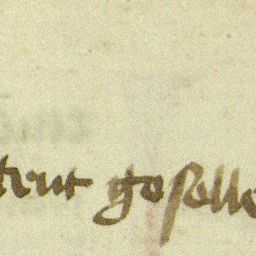 trut goſelle